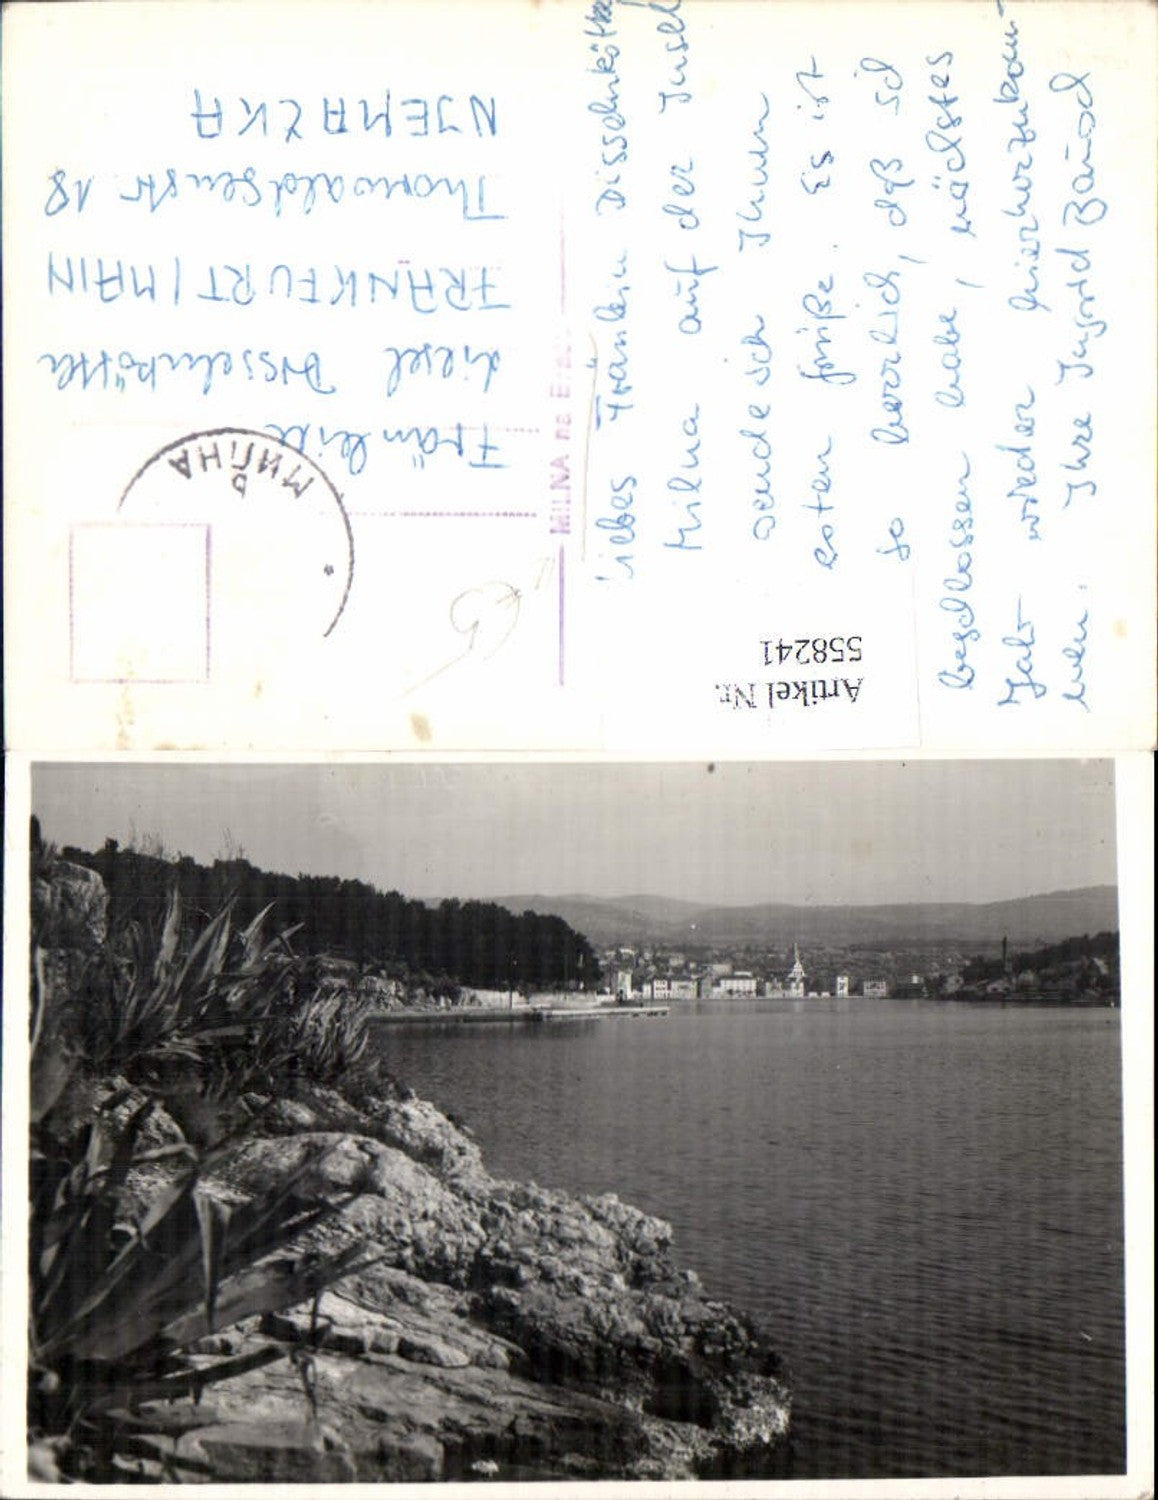 Liebes Fräulein Disselnkötter
Milna auf der Insel
sende ich Ihnen
esten Grüße. Es ist
so herrlich, daß ich
beschlossen habe, nächstes
Jahr wieder hierherzukom-
men. Ihre Ingrid
MILNA na
Fräulein
Liesel
FRANKFURT/MAIN
Thorwaldsenstr. 18
NJEMAČKA
МИЛНА
Artikel Nr.
558241